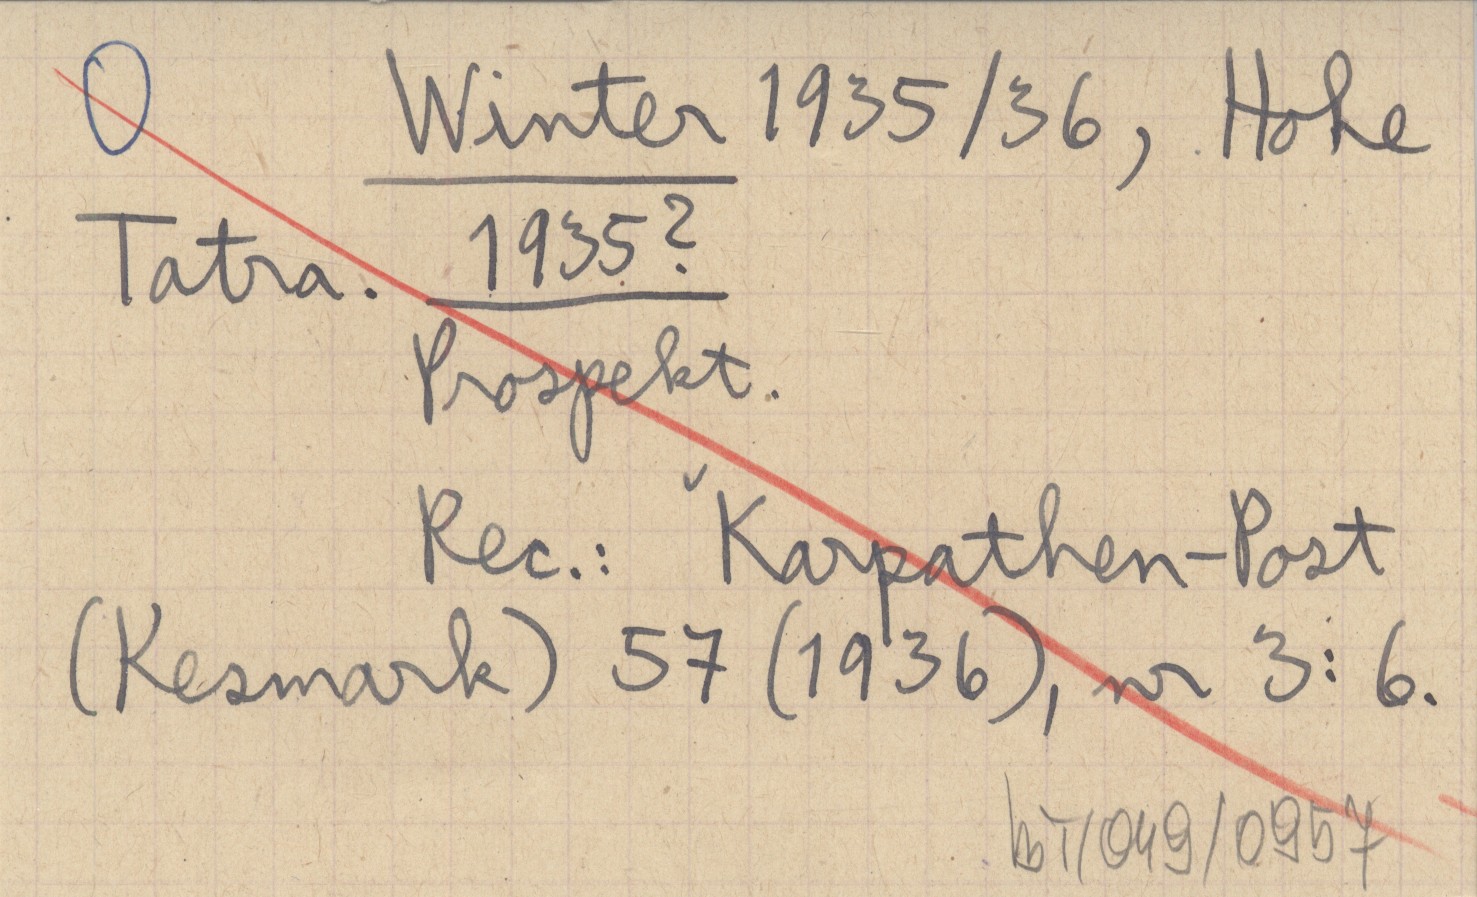 Winter 1935/36, Hohe
Tatra. 1935?
Prospekt.
Rec.: Karpathen-Post
(Kesmark) 57 (1936), nr 3: 6.
bT/049/0957